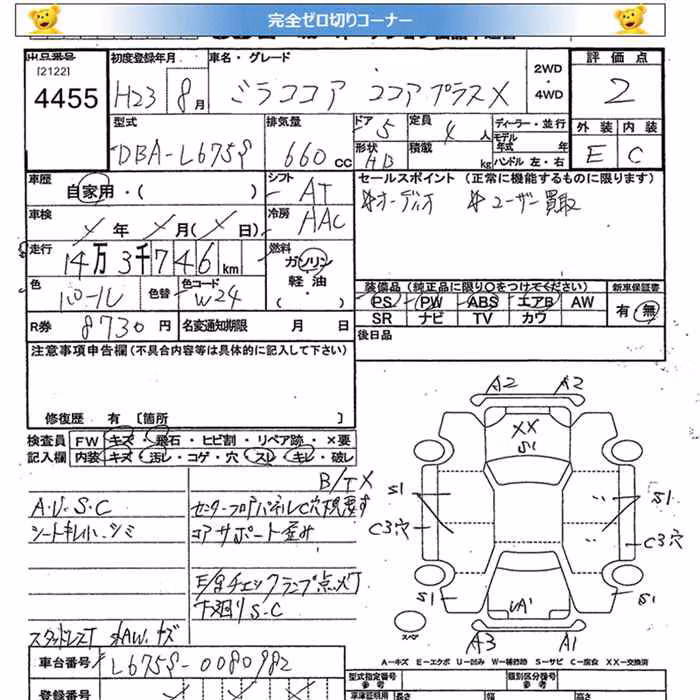 完全ゼロ切りコーナー
出品番号 初度登録年月 車名・グレード 評価点
[2122]
4455
H23 8月 ミラココア ココアプラスX 2WD・4WD 2
型式 排気量 ドア 5 定員 4人 ディーラー・並行 外装 内装
モデル年式 年
DBA-L675S 660cc 形状 HB 積載 kg ハンドル 左・右 E C
車歴 シフト セールスポイント(正常に機能するものに限ります)
自家用・( ) AT 社オーディオ ユーザー買取
車検 年 月( 日) 冷房 HAC
走行 14万3千746km 燃料 ガソリン
軽油
・( )
色 パール 色替 色コード W24
装備品(純正品に限り○をつけてください) 新車保証書
PS PW ABS エアB AW 有・無
SR ナビ TV カワ
R券 8730円 名変通知期限 月 日
後日品
注意事項申告欄(不具合内容等は具体的に記入して下さい)
修復歴 有 [箇所 ]
検査員 FW キズ・飛石・ヒビ割・リペア跡・×要
記入欄 内装 キズ・汚レ・コゲ・穴・スレ・キレ・破レ
A2 A2
XX
S1
S1 S1
C3穴 C3穴
S1 S1
A3 A1
スペア
A.U.S.C
コアサポート歪み
E/Gチェックランプ点灯
下廻りS.C
A―キズ E―エクボ U―凹み W―補修跡 S―サビ C―腐食 XX―交換済
車台番号 L675S-0080982
登録番号
型式指定番号 類別区分番号
参考
長さ 幅 高さ